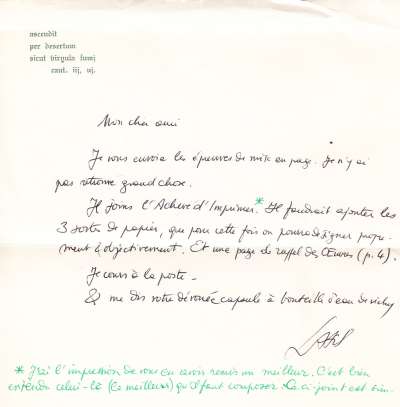 ascendit
per desertum
sicut virgula fumj
cant. iij, vj.
Mon cher ami
Je vous envoie les épreuves de mise en page. Je n'y ai
pas retrouvé grand chose.
Je joins l'Achevé d'Imprimer.* Il faudrait ajouter les
3 sortes de papier, que pour cette fois on pourra désigner propre-
ment & objectivement. Et une page de rappel des Œuvres (p. 4).
Je cours à la poste -
& me dis votre dévouée capsule à bouteille d'eau de vichy
* J'ai l'impression de vous en avoir remis un meilleur. C'est bien
entendu celui-là (le meilleur) qu'il faut composer. Le ci-joint est bien